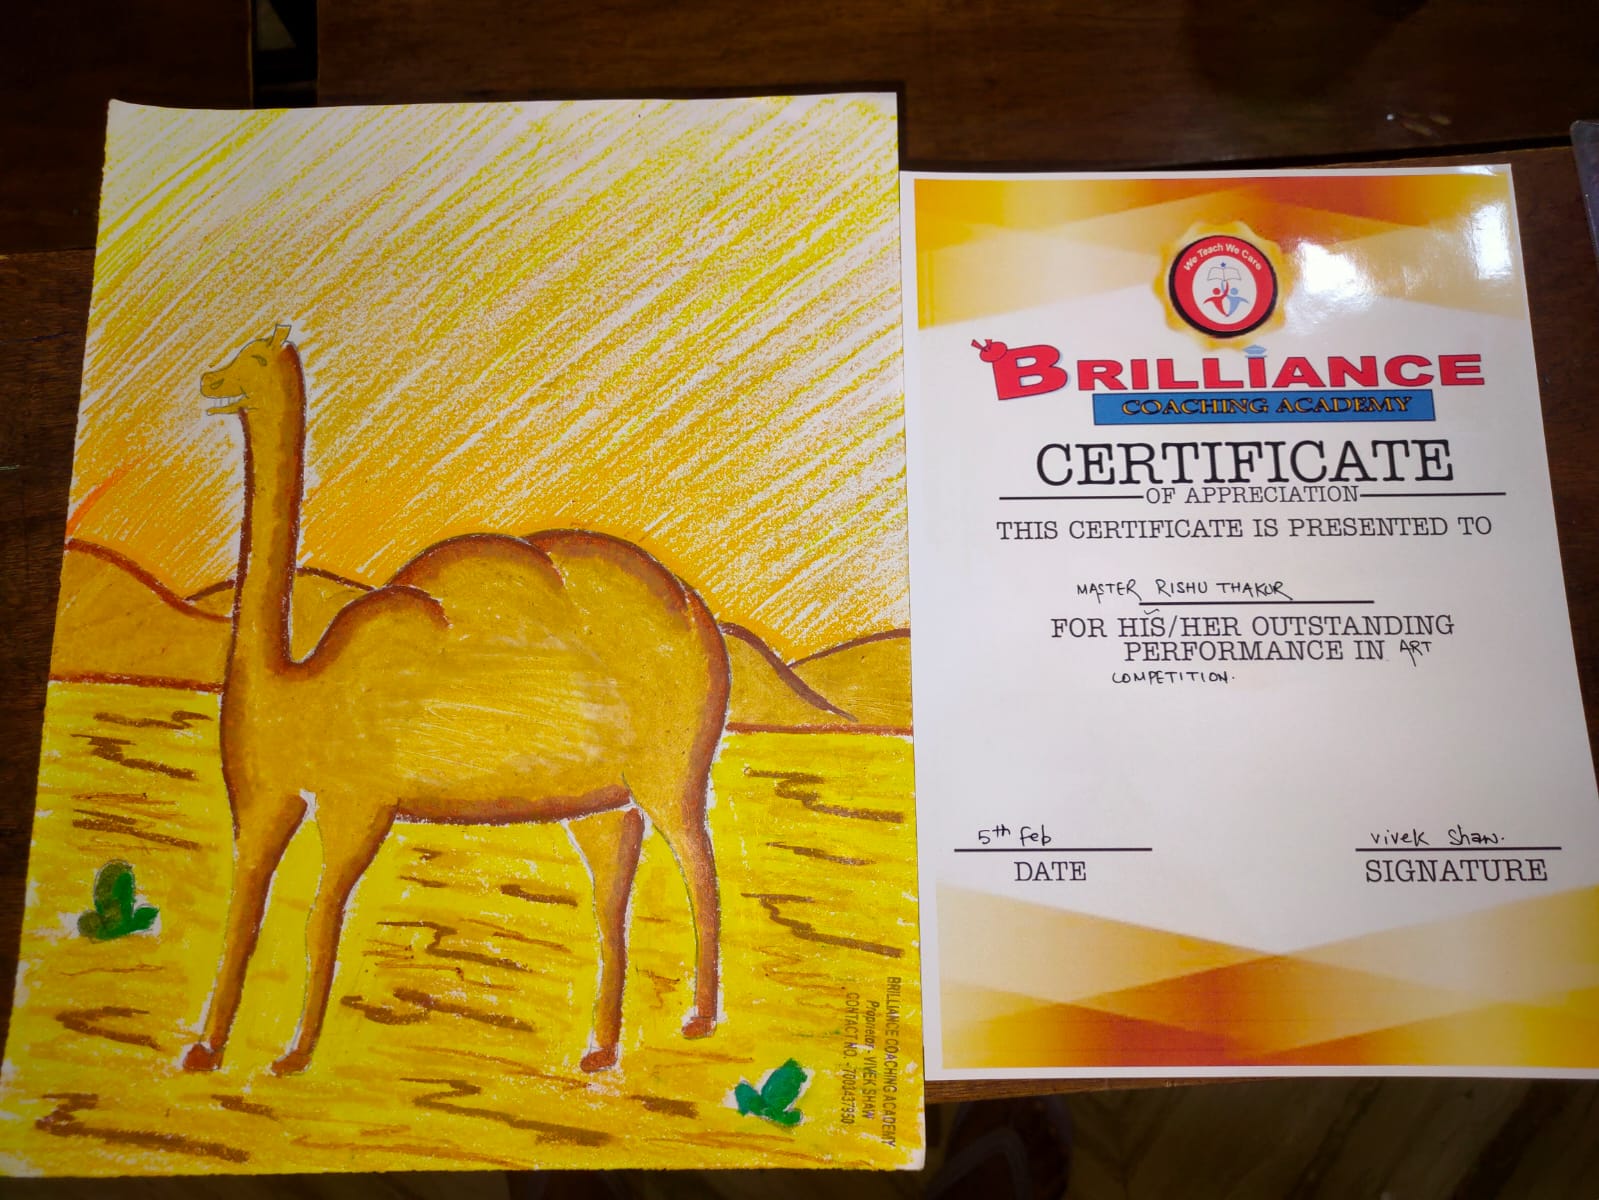 BRILLIANCE COACHING ACADEMY
Proprietor - VIVEK SHAW
CONTACT NO. - 7003437950
We Teach We Care
BRILLIANCE
COACHING ACADEMY
CERTIFICATE
OF APPRECIATION
THIS CERTIFICATE IS PRESENTED TO
MASTER RISHU THAKUR
FOR HIS/HER OUTSTANDING
PERFORMANCE IN ART
COMPETITION.
5th Feb
DATE
Vivek Shaw.
SIGNATURE